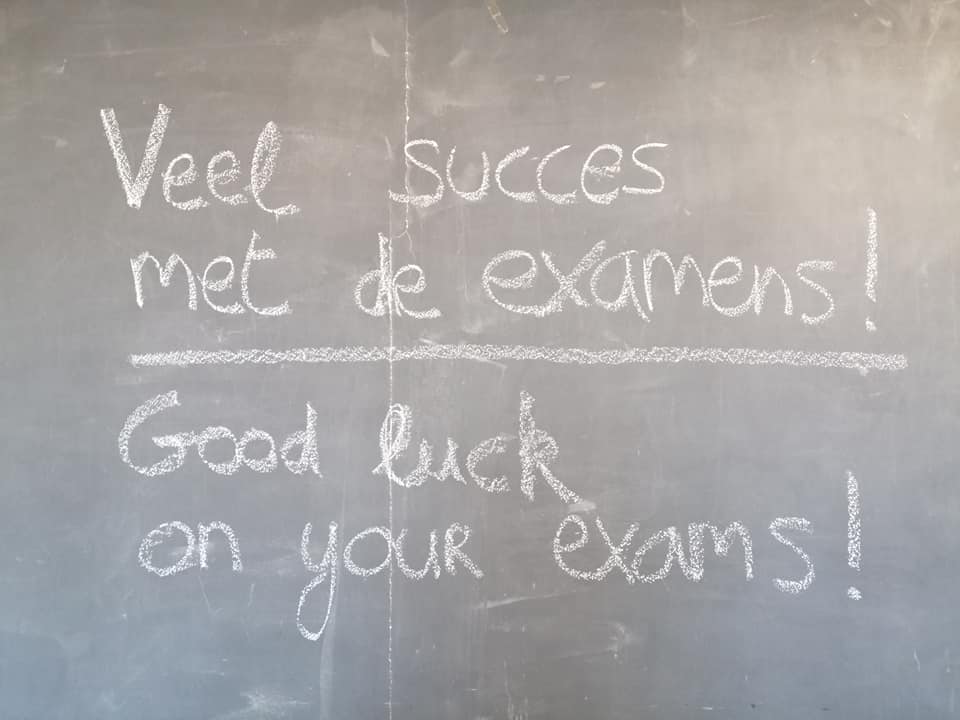 Veel succes
met de examens!
Good luck
on your exams!